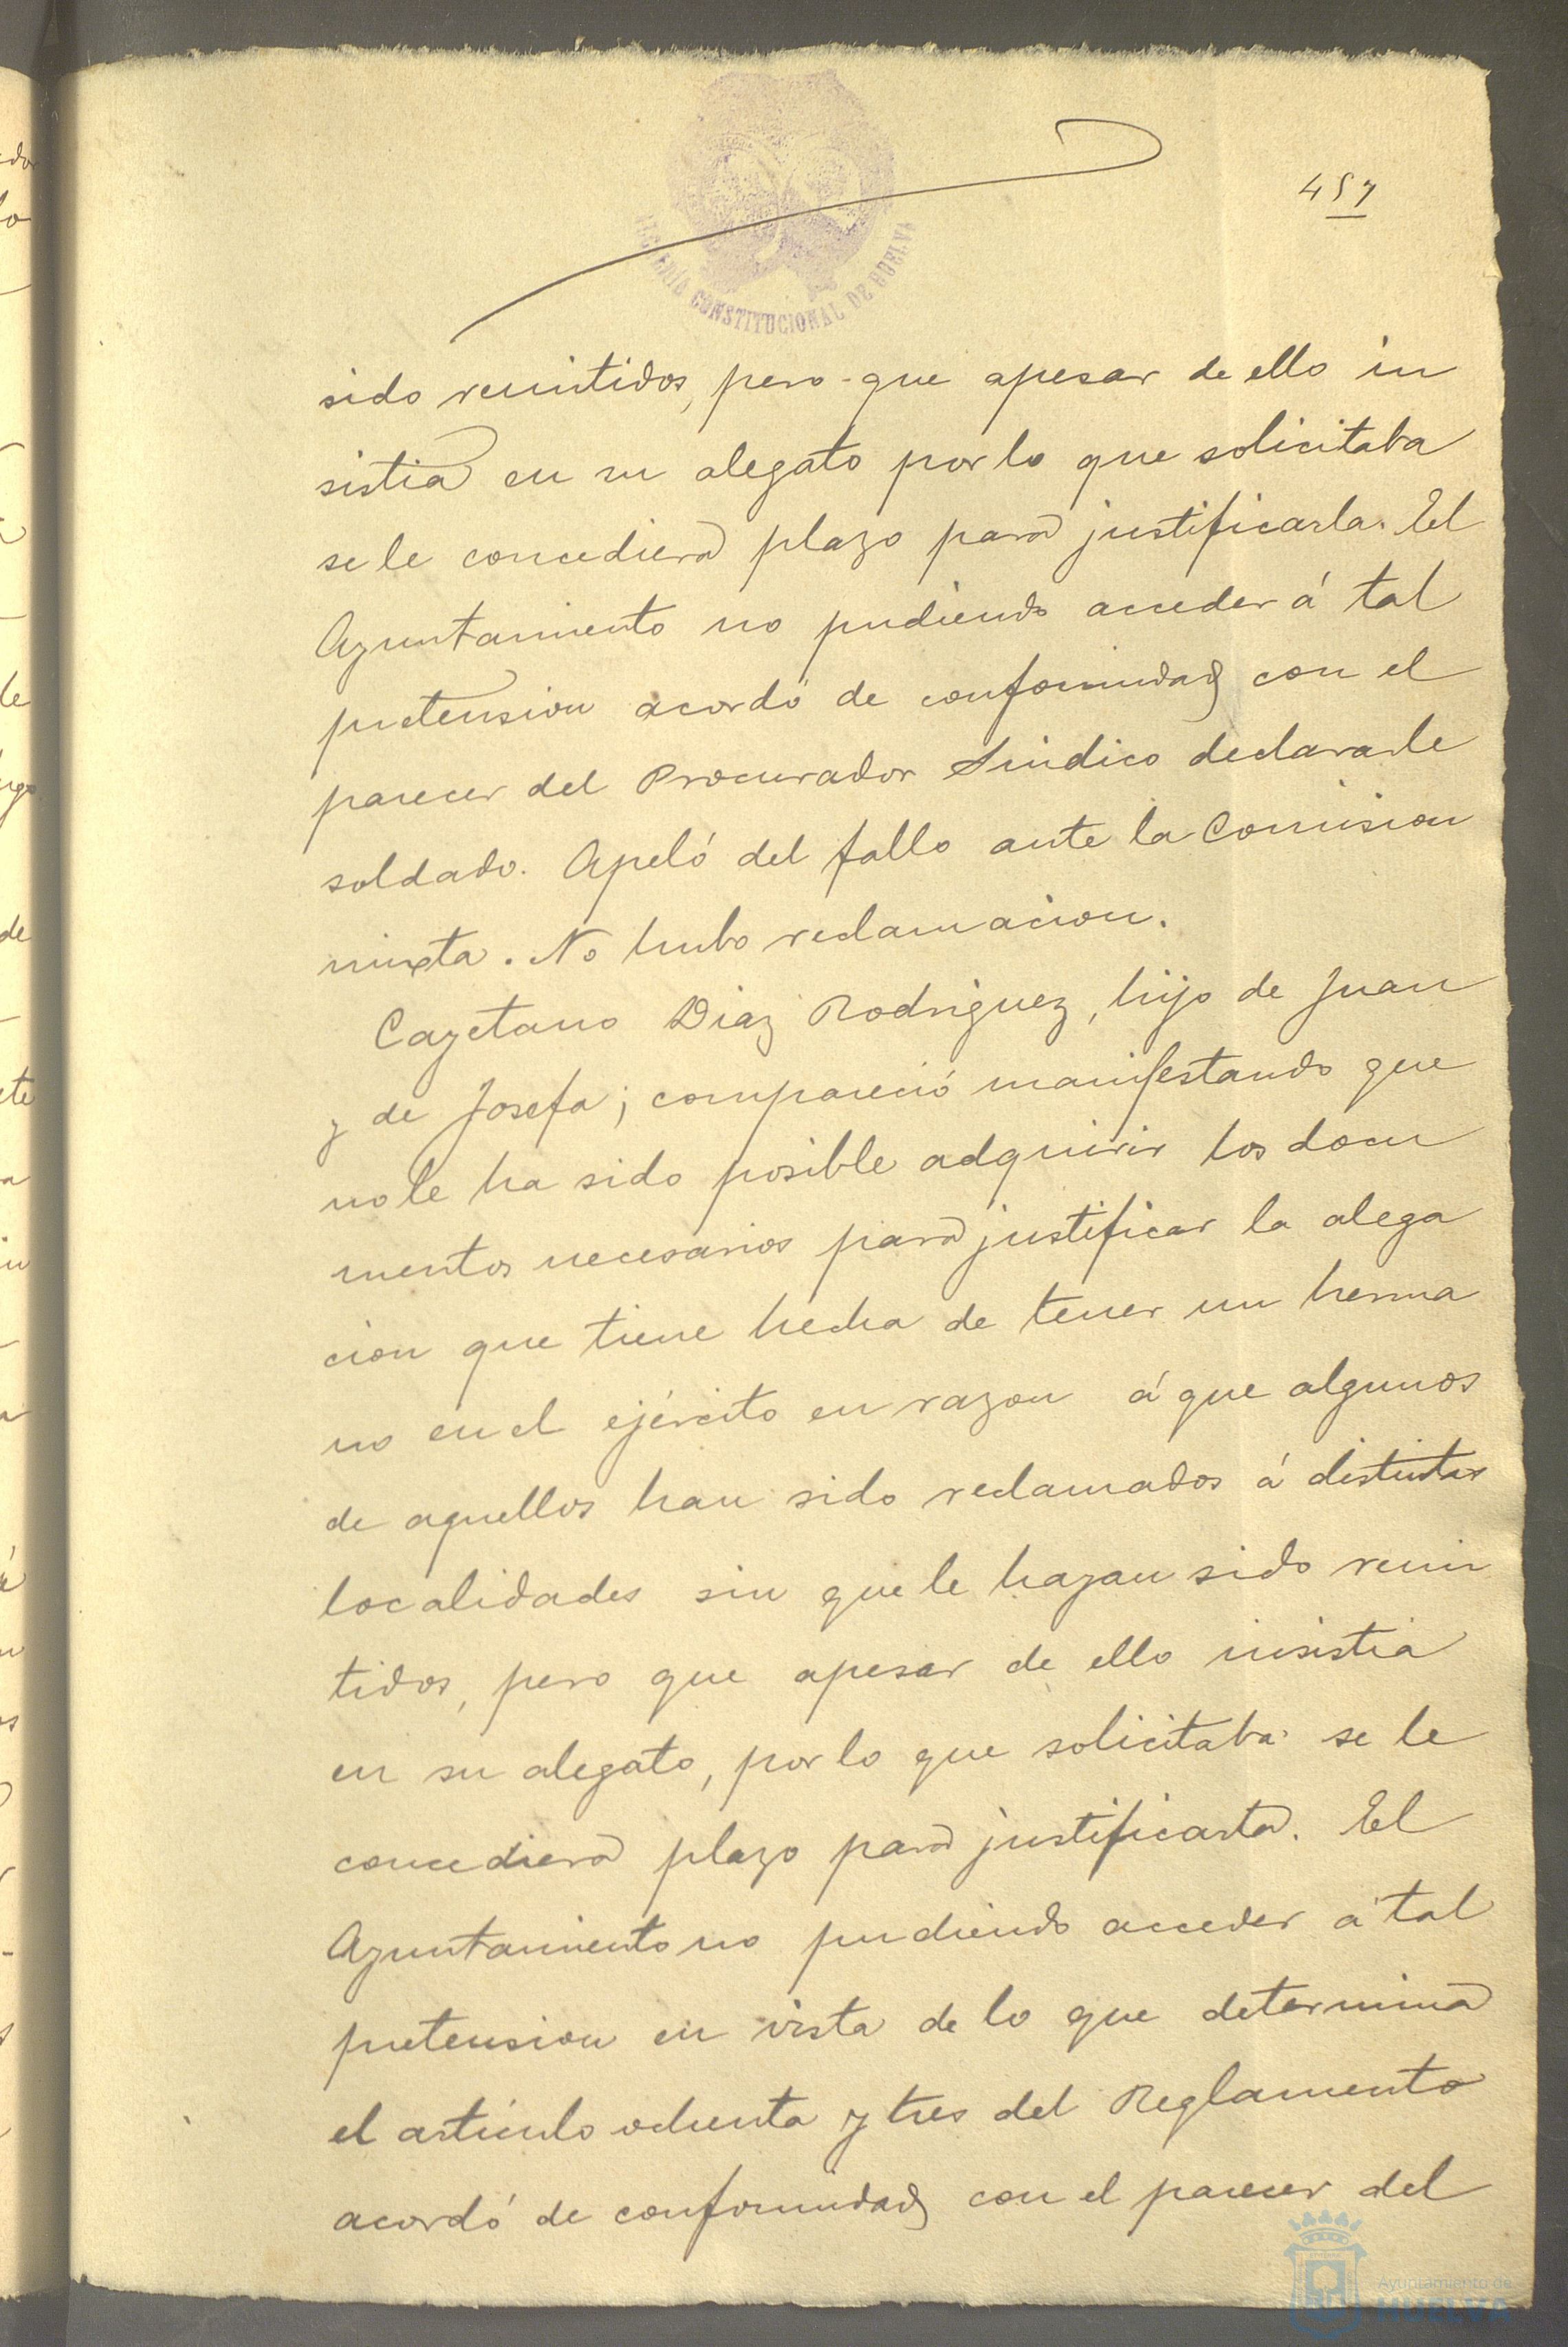 457
ALCALDÍA CONSTITUCIONAL DE HUELVA
sido remitidos, pero que apesar de ello in
sistia en su alegato por lo que solicitaba
se le concediera plazo para justificarla. El
Ayuntamiento no pudiendo acceder á tal
pretension acordó de conformidad con el
parecer del Procurador Sindico declararle
soldado. Apeló del fallo ante la Comision
mixta. No hubo reclamacion.
Cayetano Diaz Rodriguez, hijo de Juan
y de Josefa; compareció manifestando que
no le ha sido posible adquirir los docu
mentos necesarios para justificar la alega
cion que tiene hecha de tener un herma
no en el ejército en razon á que algunos
de aquellos han sido reclamados á distintas
localidades sin que le hayan sido remi
tidos, pero que apesar de ello insistia
en su alegato, por lo que solicitaba se le
concediera plazo para justificarla. El
Ayuntamiento no pudiendo acceder á tal
pretension en vista de lo que determina
el artículo ochenta y tres del Reglamento
acordó de conformidad con el parecer del
Ayuntamiento de
HUELVA